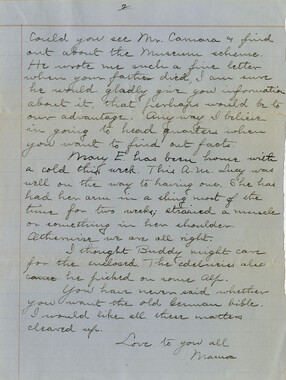 2
Could you see Mr. Camara & find
out about the Museum scheme.
He wrote me such a fine letter
when your father died, I am sure
he would gladly give you information
about it, that perhaps would be to
our advantage. Any way I believe
in going to head quarters when
you want to find out facts.
Mary E has been home with
a cold this week. This A.M. Lucy was
well on the way to having one. She has
had her arm in a sling most of the
time for two weeks; strained a muscle
or something in her shoulder.
Otherwise we are all right.
I thought Buddy might care
for the enclosed. The edelweiss also
cause he picked on some Alp.
You have never said whether
you want the old German bible.
I would like all these matters
cleared up.
Love to you all
Mama